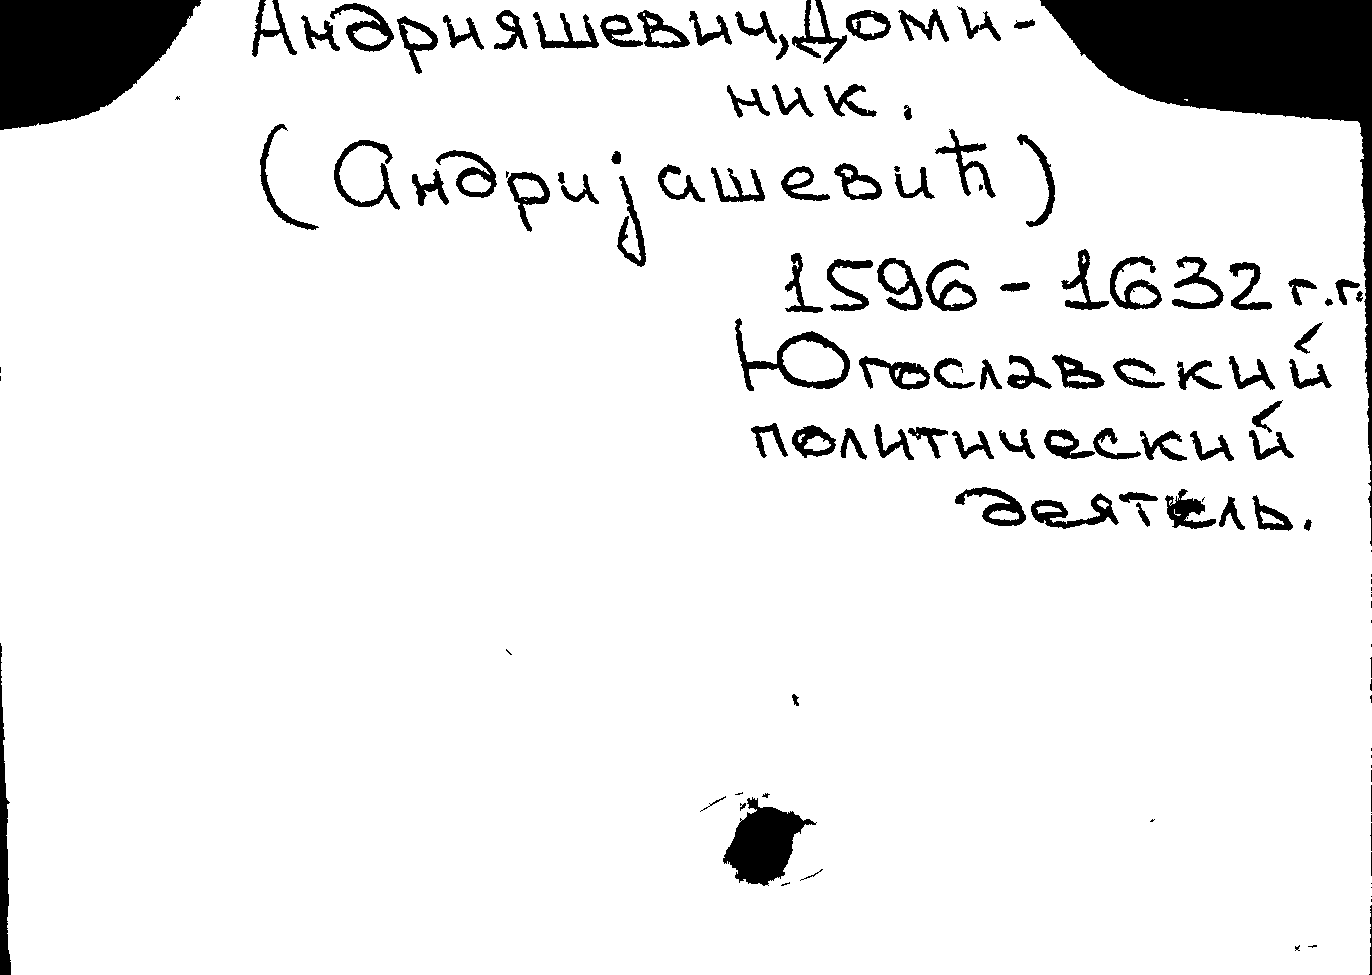 Андрияшевич, Доми-
ник.
(Андријашевић)
1596 - 1632 г.г.
Югославский
политический
деятель.